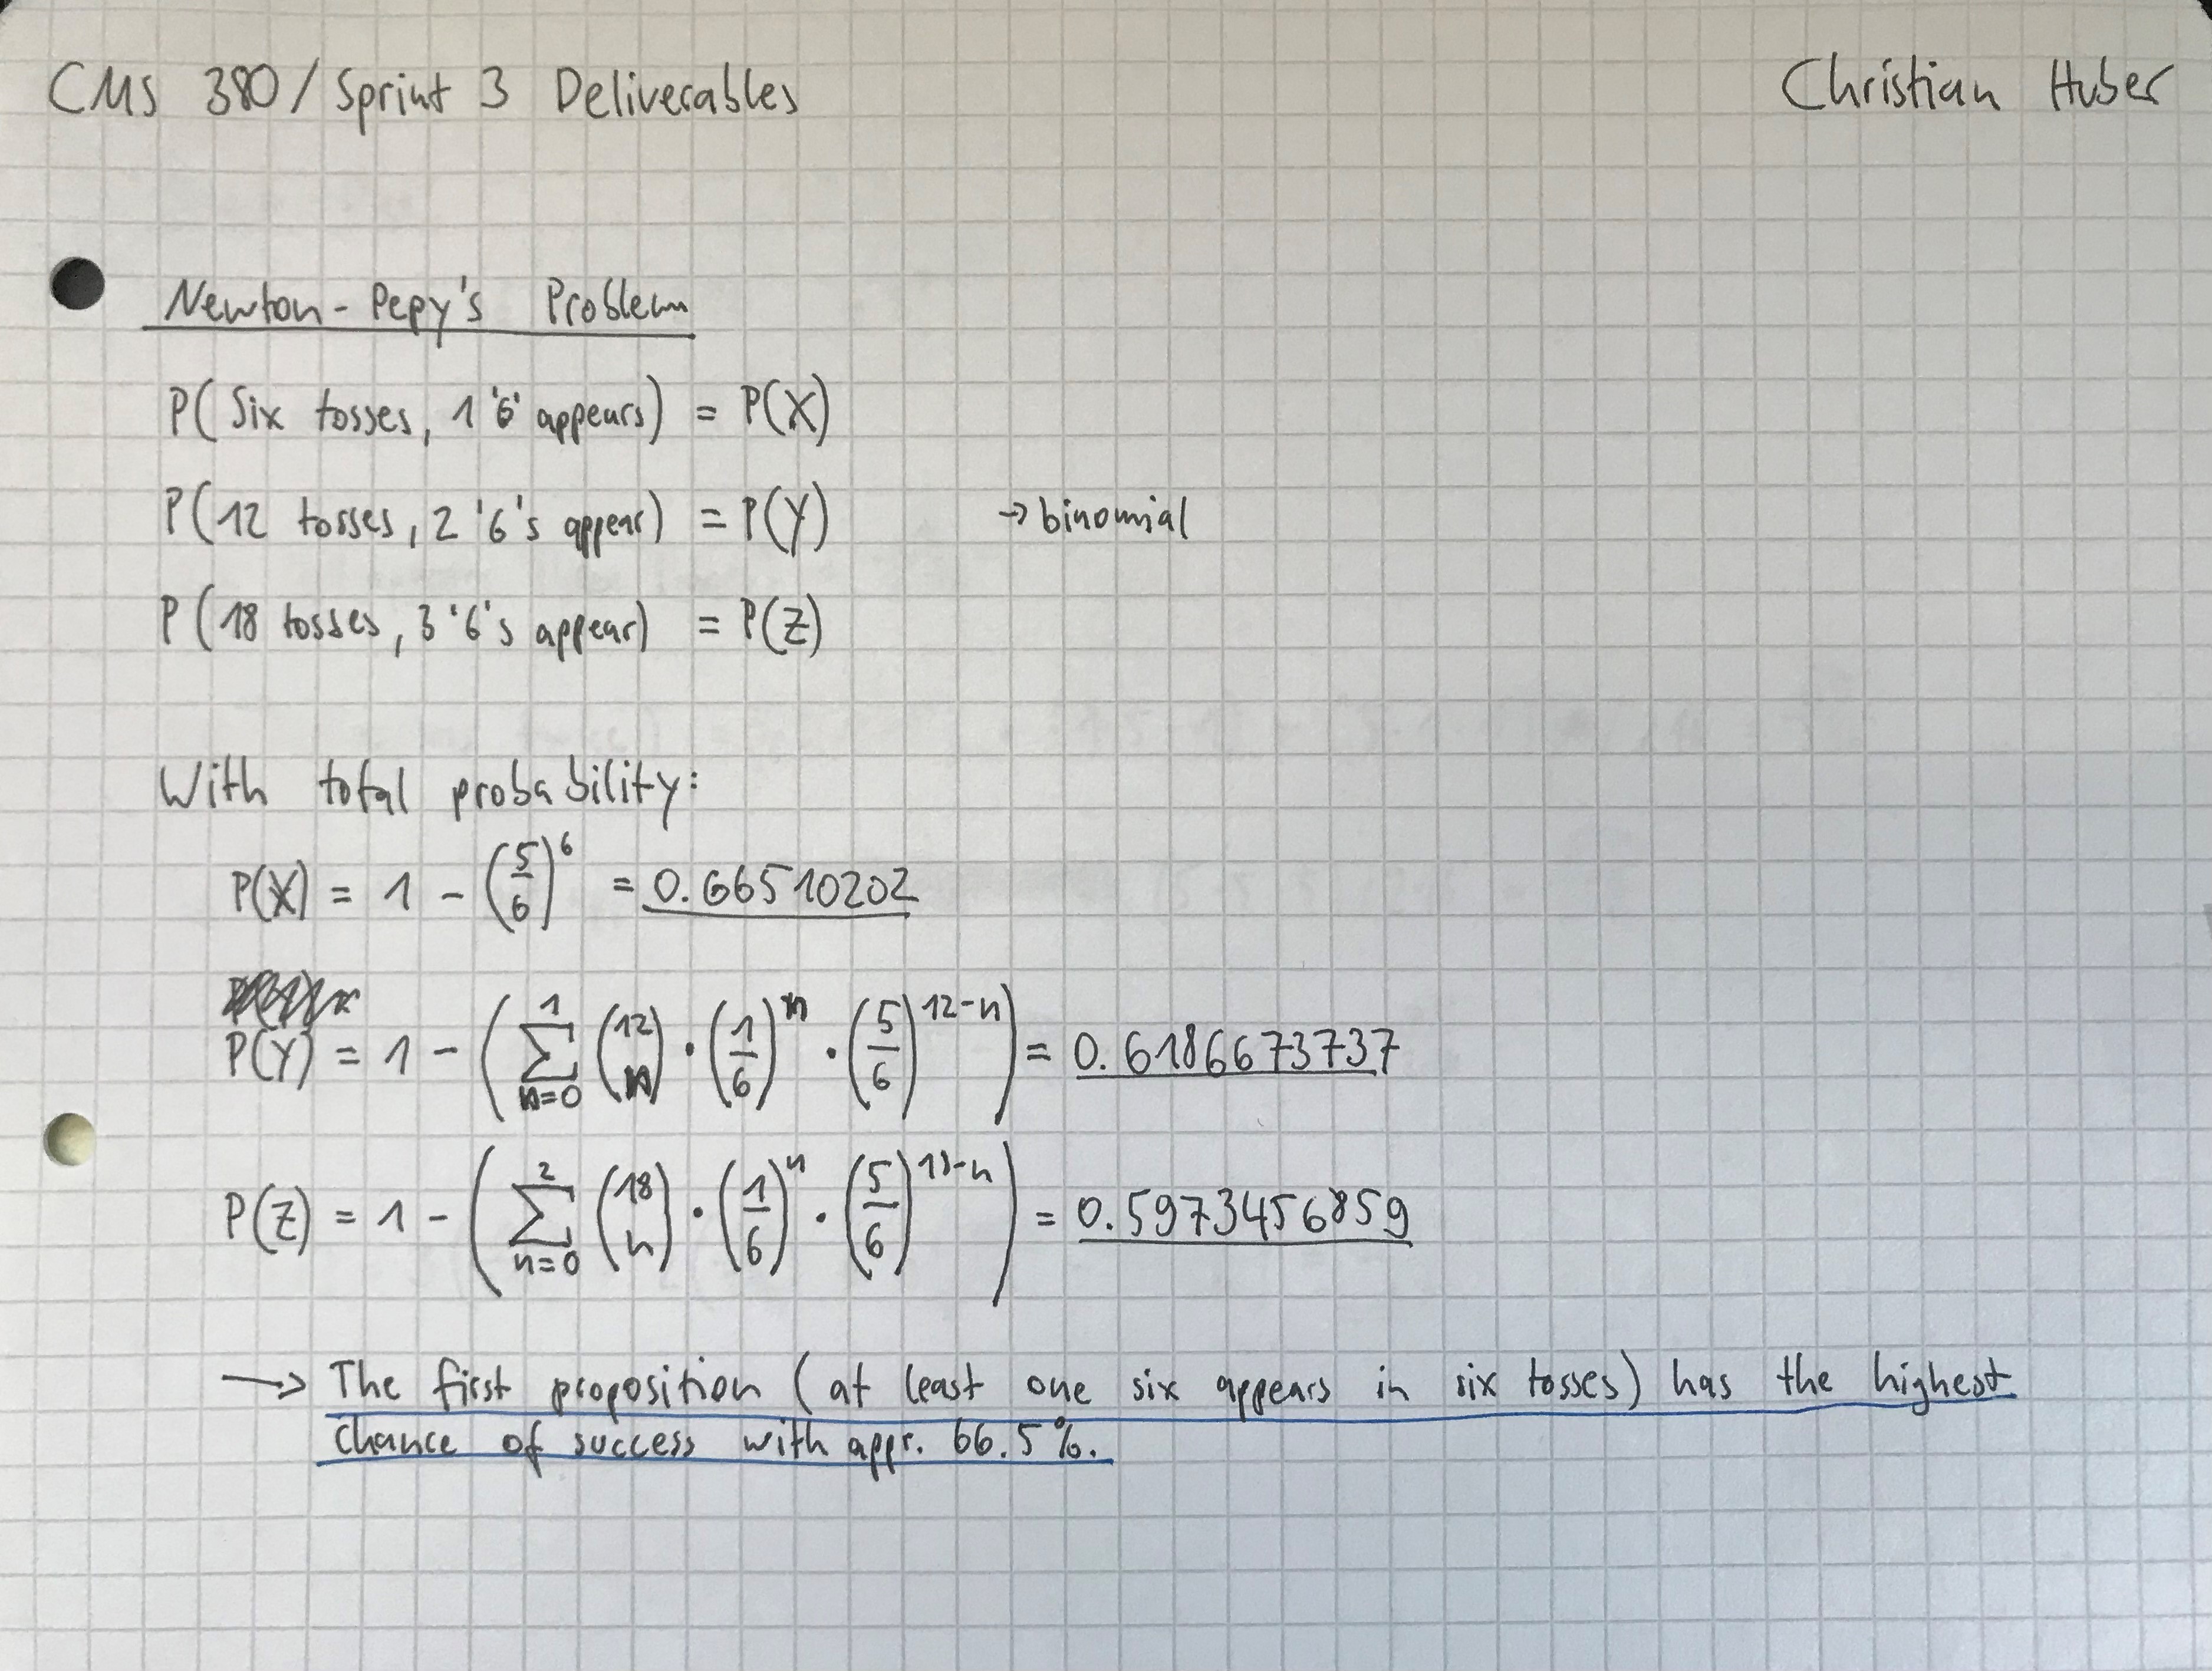 CMS 380/Sprint 3 Deliverables Christian Huber
Newton-Pepy's Problem
P(Six tosses, 1 '6' appears) = P(X)
P(12 tosses, 2 '6's appear) = P(Y) → binomial
P(18 tosses, 3 '6's appear) = P(Z)
With total probability:
P(X) = 1 - (5/6)^6 = 0.66510202
P(Y) = 1 - (∑_{n=0}^{1} (12 n) · (1/6)^n · (5/6)^{12-n}) = 0.6186673737
P(Z) = 1 - (∑_{n=0}^{2} (18 n) · (1/6)^n · (5/6)^{18-n}) = 0.5973456859
→ The first proposition (at least one six appears in six tosses) has the highest
chance of success with appr. 66.5%.